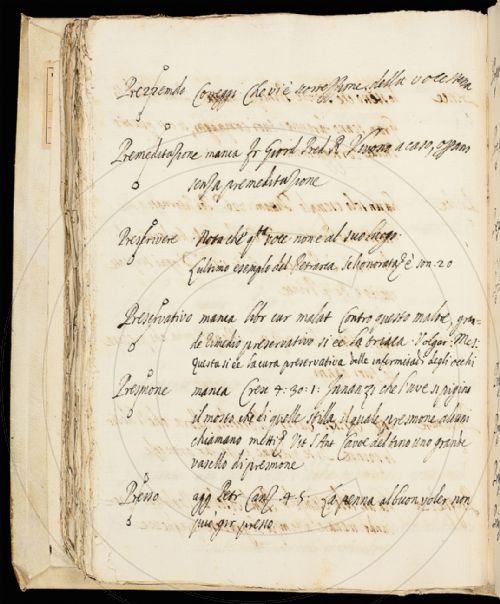 Prezzendo Coreggi che vi è scorrezione della voce stessa
Premeditazione manca fr Giord Pred. R. Vivono a caso, operano
senza premeditazione
Prescrivere Nota che qta voce non è al suo luogo.
L'ultimo esempio del Petrarca, Se honorata è son. 20
Preservativo manca libr cur malat Contro questo madre, gran
de rimedio preservativo si è la Volgar. Mes.
questa si è la cura preservativa delle infermitadi degli occhi
Presmone manca Cresc 4. 30. 1. Innanzi che l'uve si pigino
il mosto che di quelle stilla il quale presmone alcuni
chiamano Vit S. Ant Cavoe del tino uno grande
vasello di presmone
Presso agg Petr Canz 4. 5. La penna al buon voler non
può gir presso